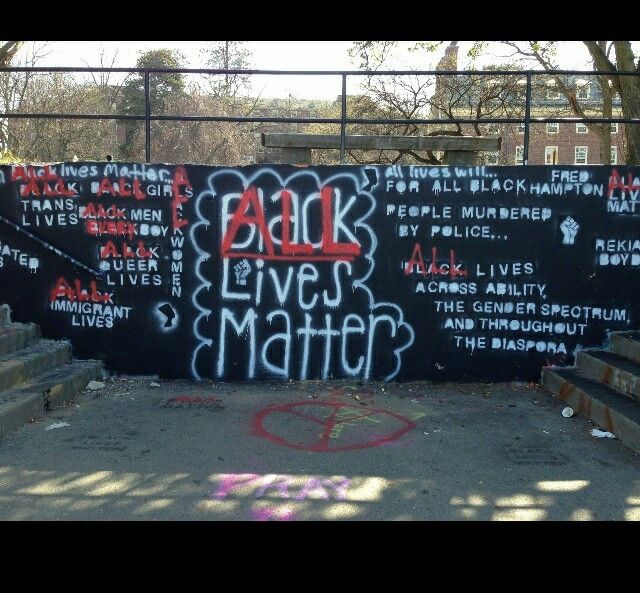 Black lives Matter...
ALL
BLACK GIRLS
ALL
TRANS
LIVES
BLACK MEN
BLACK BOY
ALL
QUEER
LIVES
ALL
IMMIGRANT
LIVES
BLACK WOMEN
ATED
Black
ALL
Lives
Matter
all lives will...
FOR ALL BLACK
PEOPLE MURDERED
BY POLICE...
BLACK LIVES
ALL
ACROSS ABILITY,
THE GENDER SPECTRUM,
AND THROUGHOUT
THE DIASPORA
FRED
HAMPTON
LIV
MAT
REKIA
BOYD
PRAY